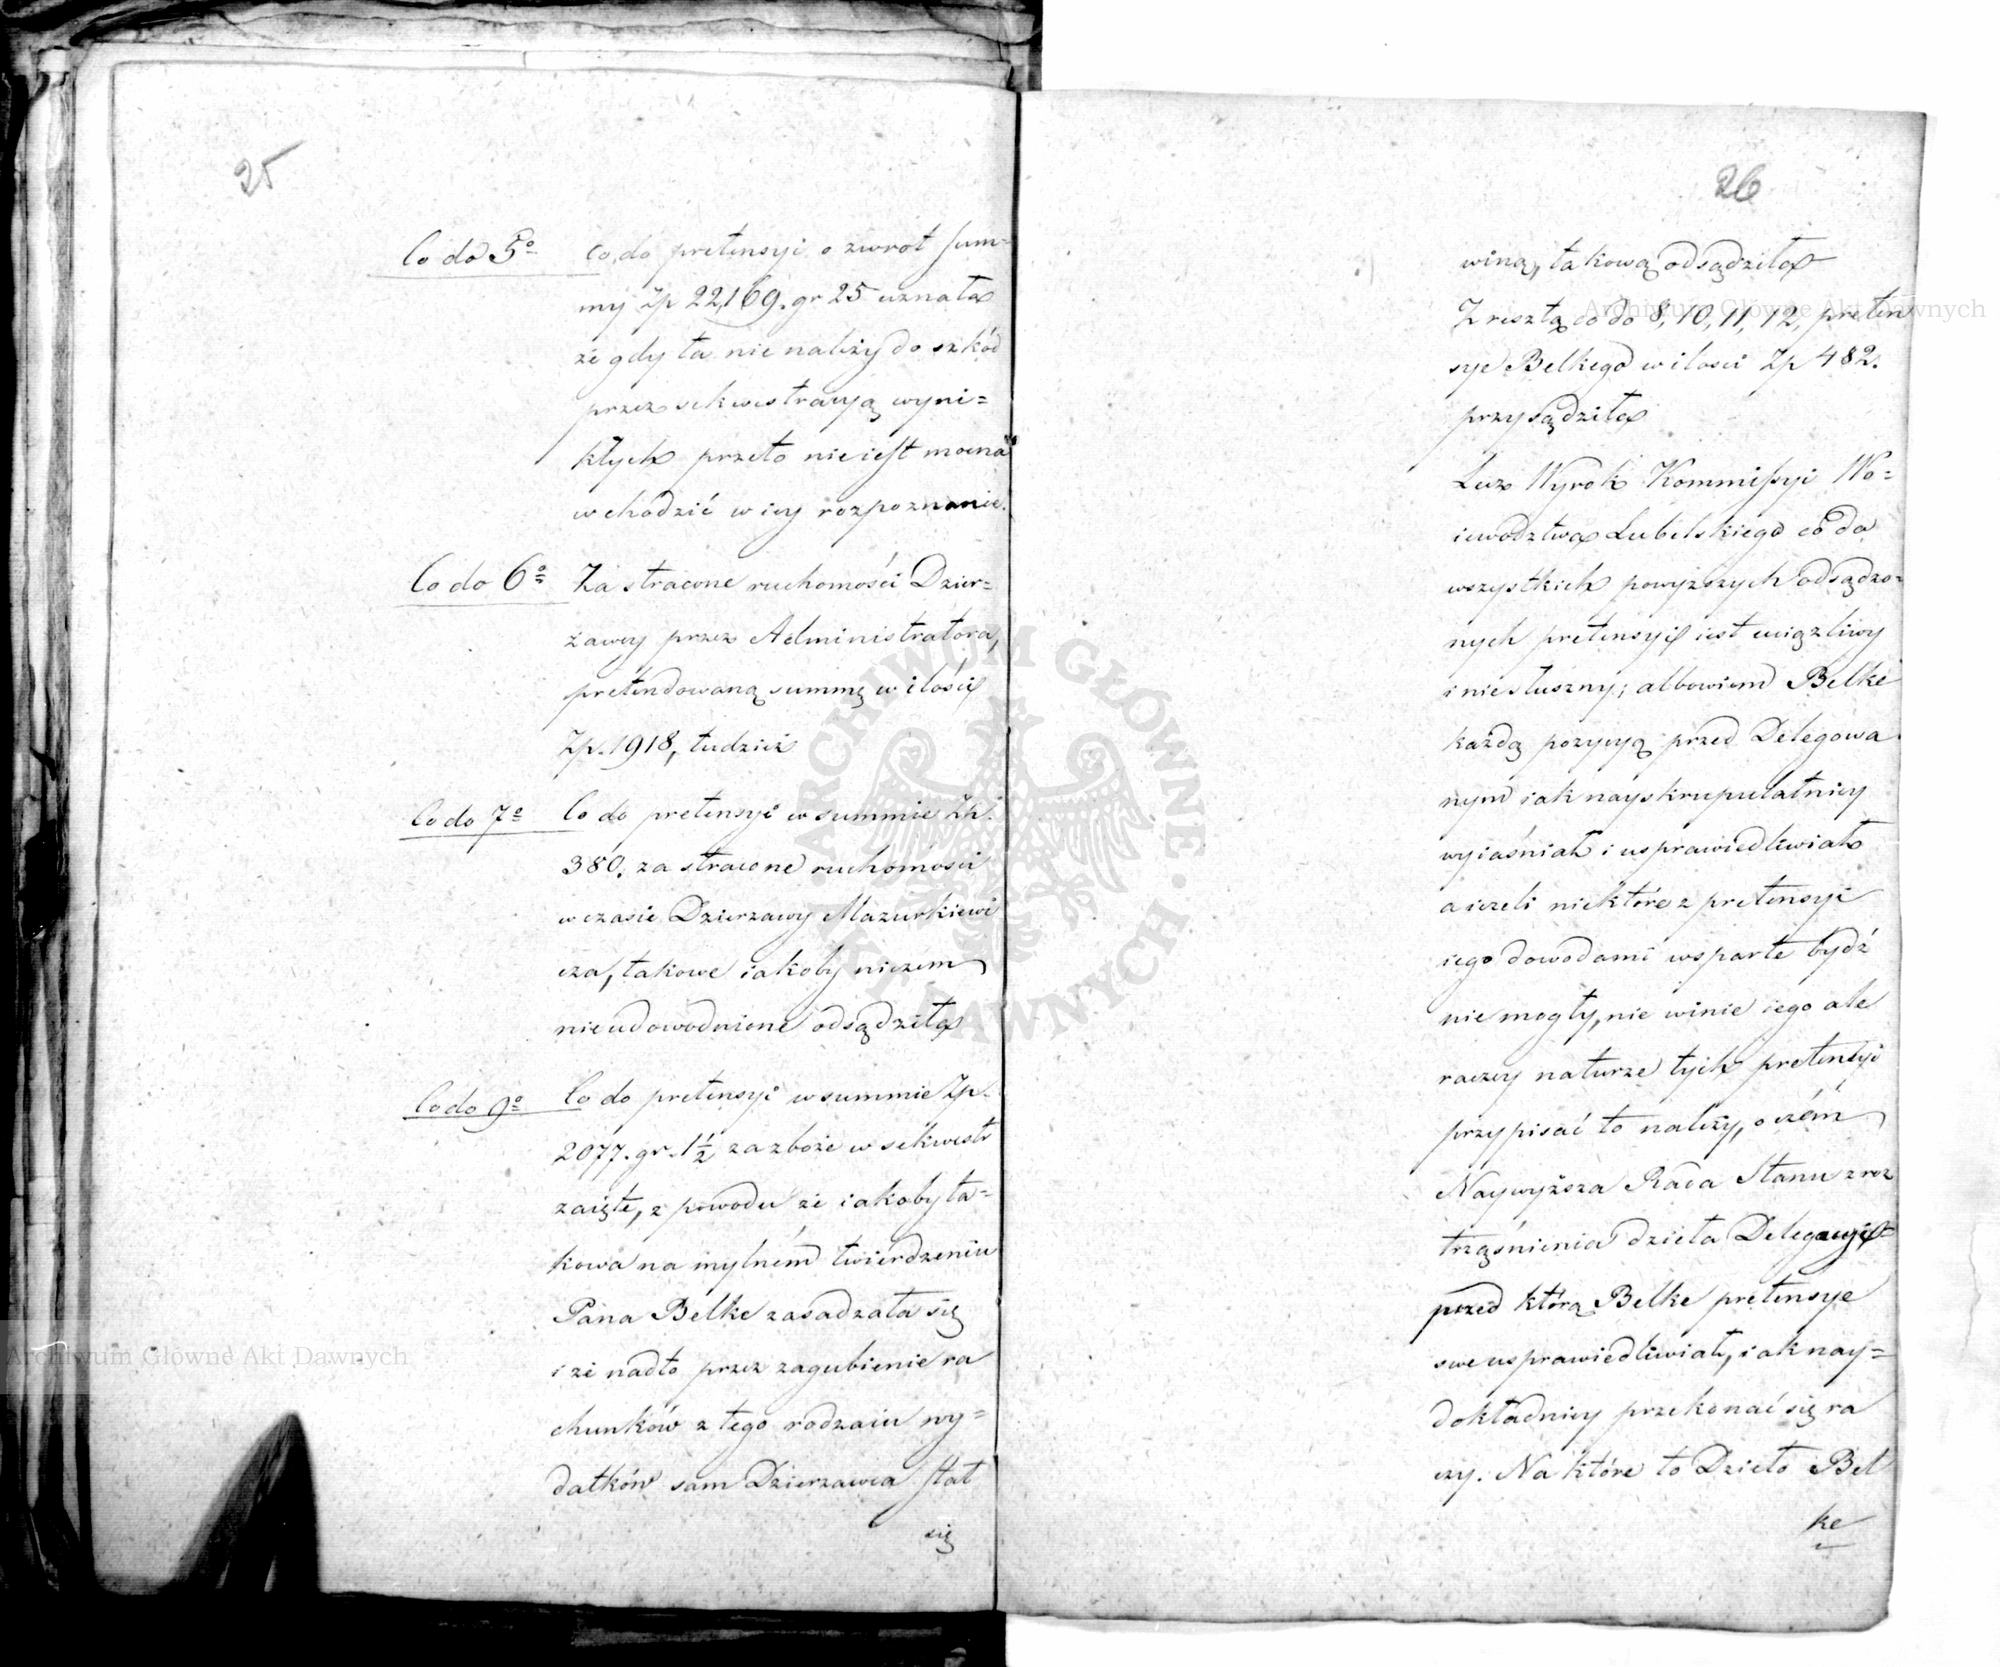 25
Co do 5º
co do pretensyi o zwrot sum=
my Zp 22,169. gr 25 uznała
że gdy ta nie należy do szkód
przez sekwestracyą wyni=
kłych przeto nie iest mocna
wchodzić w iey rozpoznanie.
Co do 6º
Za stracone ruchomości Dzier=
żawcy przez Administratora,
pretendowaną summę w ilości
Zp. 1918, tudzież
Co do 7º
Co do pretensyi w summie Zł.
380. za stracone ruchomości
w czasie Dzierzawy Mazurkiewi
cza, takowe iakoby niczem
nieudowodnione odsądziła
Co do 9º
Co do pretensyi w summie Zp.
2077. gr. 1½ za zboże w sekwestr
zaięte, z powodu że iakoby ta=
kowa na mylném twierdzeniu
Pana Belke zasadzała się
i że nadto przez zagubienie ra
chunków z tego rodzaiu wy=
datków sam Dzierzawca stał
się
26
winą, takową odsądziła
Zresztą co do 8, 10, 11, 12, preten
sye Belkego w ilości Zp 482.
przysądziła
Lecz Wyrok Kommissyi Wo=
iewodztwa Lubelskiego co do
wszystkich powyższych odsądzo=
nych pretensyi iest uciązliwy
i niesłuszny; albowiem Belke
każdą pozycyą przed Delegowa
nym iak nayskrupulatniey
wyiaśniał i usprawiedliwiał
a ieżeli niektóre z pretensyi
iego dowodami wsparte bydź
nie mogły, nie winie iego ale
raczey naturze tych pretensyi
przypisać to należy, o czém
Naywyższa Rada Stanu z roz
trząśnienia dzieła Delegacyi
przed którą Belke pretensye
swe usprawiedliwiał, iak nay=
dokładniey przekonać się ra
czy. Na które to Dzieło Bel
ke
Archiwum Główne Akt Dawnych
Archiwum Główne Akt Dawnych
ARCHIWUM GŁÓWNE AKT DAWNYCH